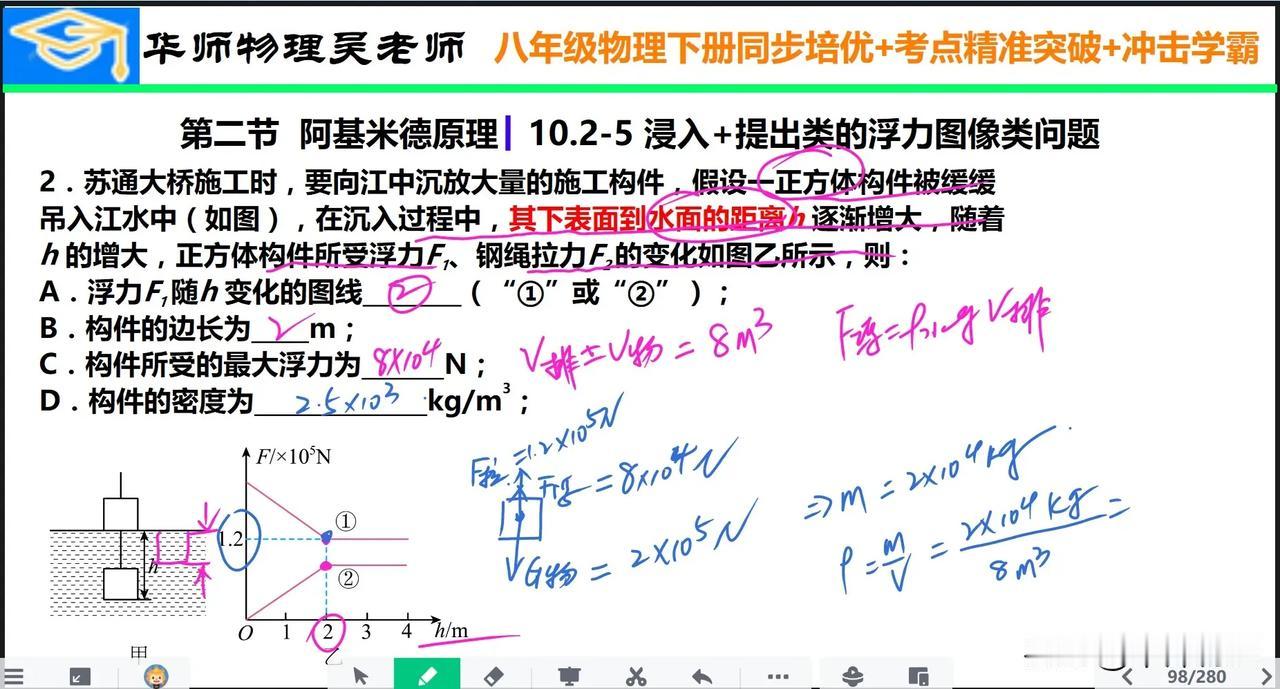 华师物理吴老师 八年级物理下册同步培优+考点精准突破+冲击学霸
第二节 阿基米德原理| 10.2-5 浸入+提出类的浮力图像类问题
2．苏通大桥施工时，要向江中沉放大量的施工构件，假设一正方体构件被缓缓
吊入江水中（如图），在沉入过程中，其下表面到水面的距离h逐渐增大，随着
h的增大，正方体构件所受浮力F₁、钢绳拉力F₂的变化如图乙所示，则：
A．浮力F₁随h变化的图线 ② （“①”或“②”）；
B．构件的边长为 2 m；
C．构件所受的最大浮力为 8×10⁴ N；
D．构件的密度为 2.5×10³ kg/m³；
V排=V物=8m³
F浮=ρ水gV排
F/×10⁵N
1.2
①
②
O 1 2 3 4 h/m
h
甲
乙
F拉=1.2×10⁵N
F浮=8×10⁴N
G物=2×10⁵N
⇒m=2×10⁴kg
ρ=m/V=2×10⁴kg/8m³=
98/280